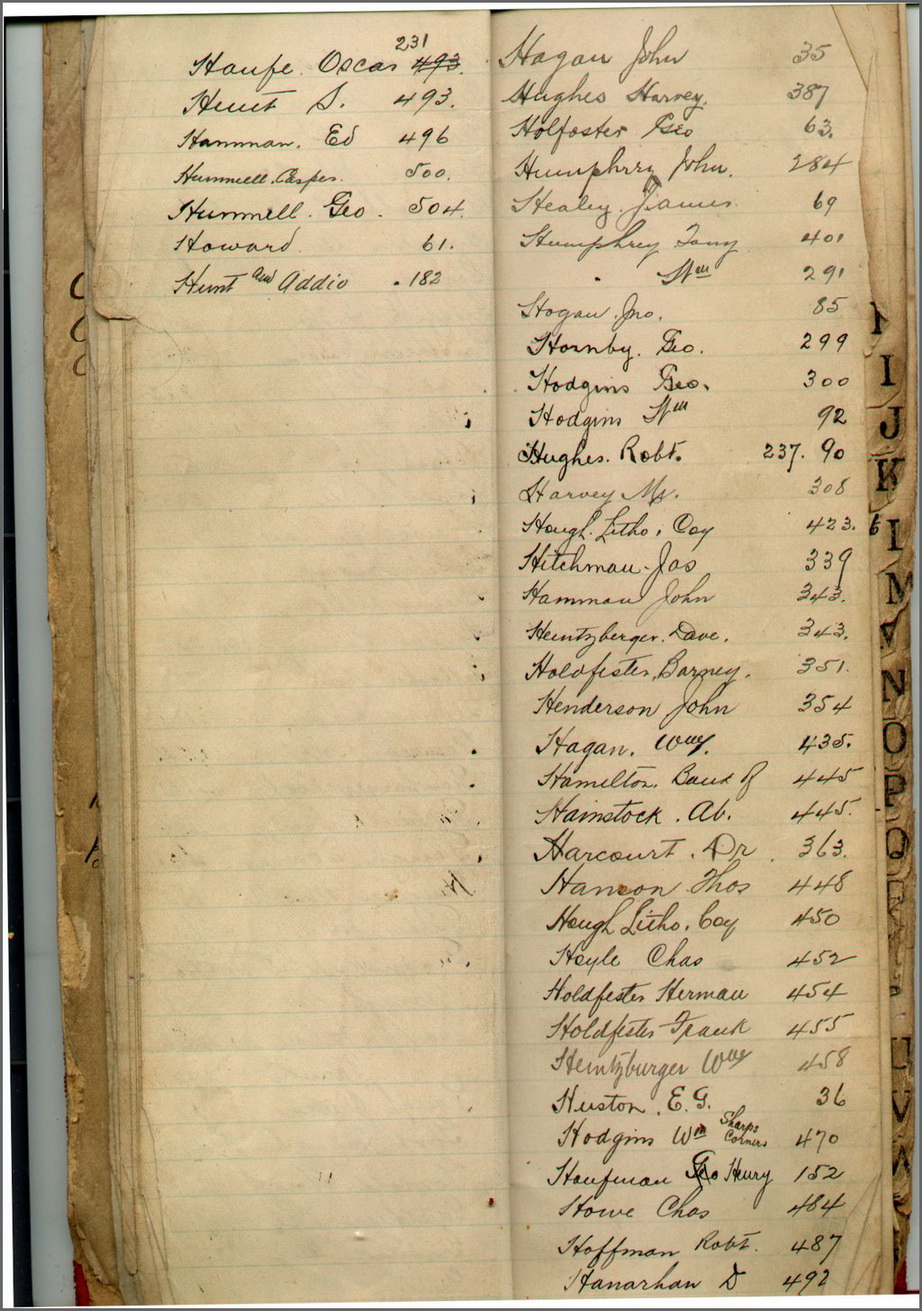 231
Haufe. Oscar 493.
Hunt S. 493.
Hamman. Ed 496
Hummell. Casper. 500.
Hummell. Geo. 504.
Howard. 61.
Hunt Addio . 182
Hagan John 35
Hughes Harvey. 387
Holfoster Geo 63.
Humphrry John. 284
Healey. James 69
Humphrey Tony 401
" Wm 291
Hogan. Jno. 85
Hornby. Geo. 299
Hodgins Geo. 300
Hodgins Wm 92
Hughes. Robt. 237. 90
Harvey Mr. 308
Hough. Litho. Coy 423. 6
Hitchman. Jas 339
Hamman John 343.
Heintzberger. Dave. 343.
Holdfester, Barney. 351.
Henderson John 354
Hagan. Wm. 435.
Hamilton. Bank of 445
Hainstock. Ab. 445.
Harcourt. Dr. 363.
Hanson Thos 448
Hough Litho. Coy 450
Hoyle Chas 452
Holdfester Herman 454
Holdfester Frank 455
Heintzburger Wm 458
Huston. E. G. 36
Hodgins Wm Sharps Corners 470
Haufman Geo Henry 152
Howe Chas 484
Hoffman Robt. 487
Hanarhan D 492
I
J
K
M
N
O
P
Q
V